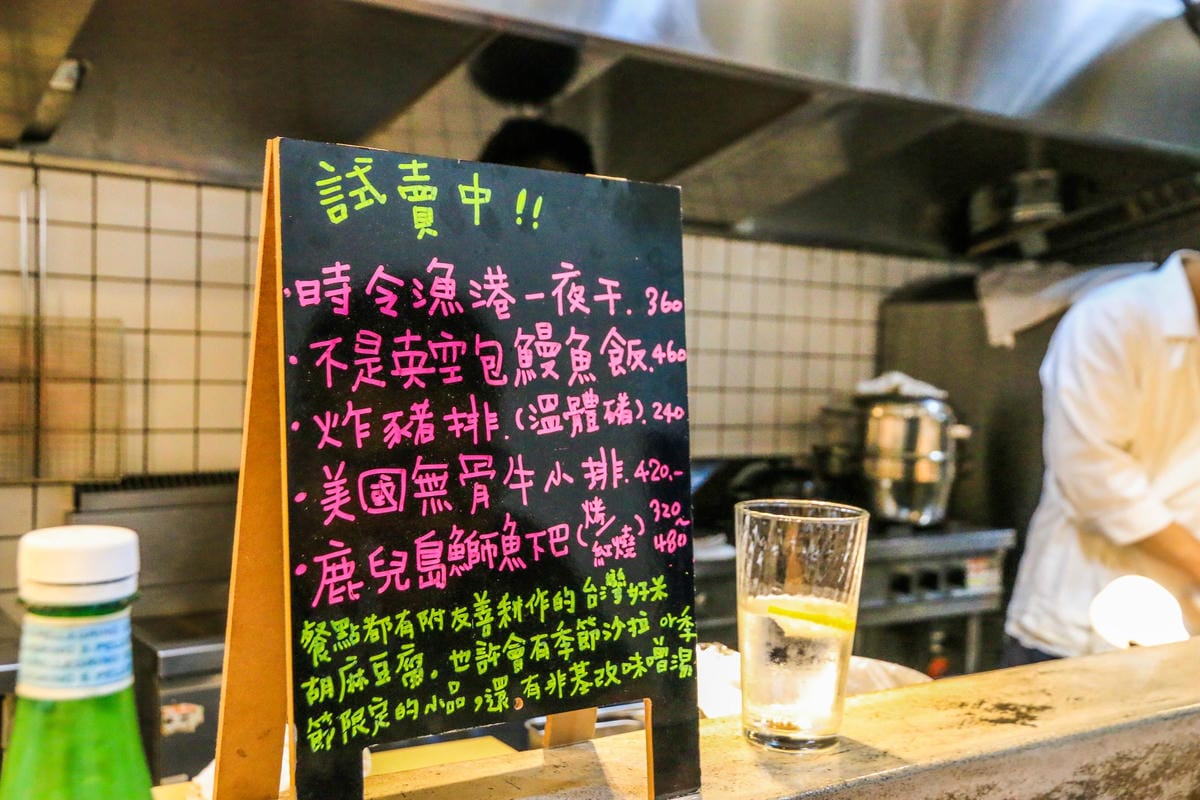 試賣中!!
·時令漁港一夜干.360
·不是英空包鰻魚飯.460
·炸豬排.(溫體豬).240
·美國無骨牛小排.420.-
·鹿兒島鰤魚下巴(烤/紅燒)320~480
餐點都有附友善耕作的台灣好米
胡麻豆腐。也許會有季節沙拉 小季
節限定的小品,還有非基改味噌湯